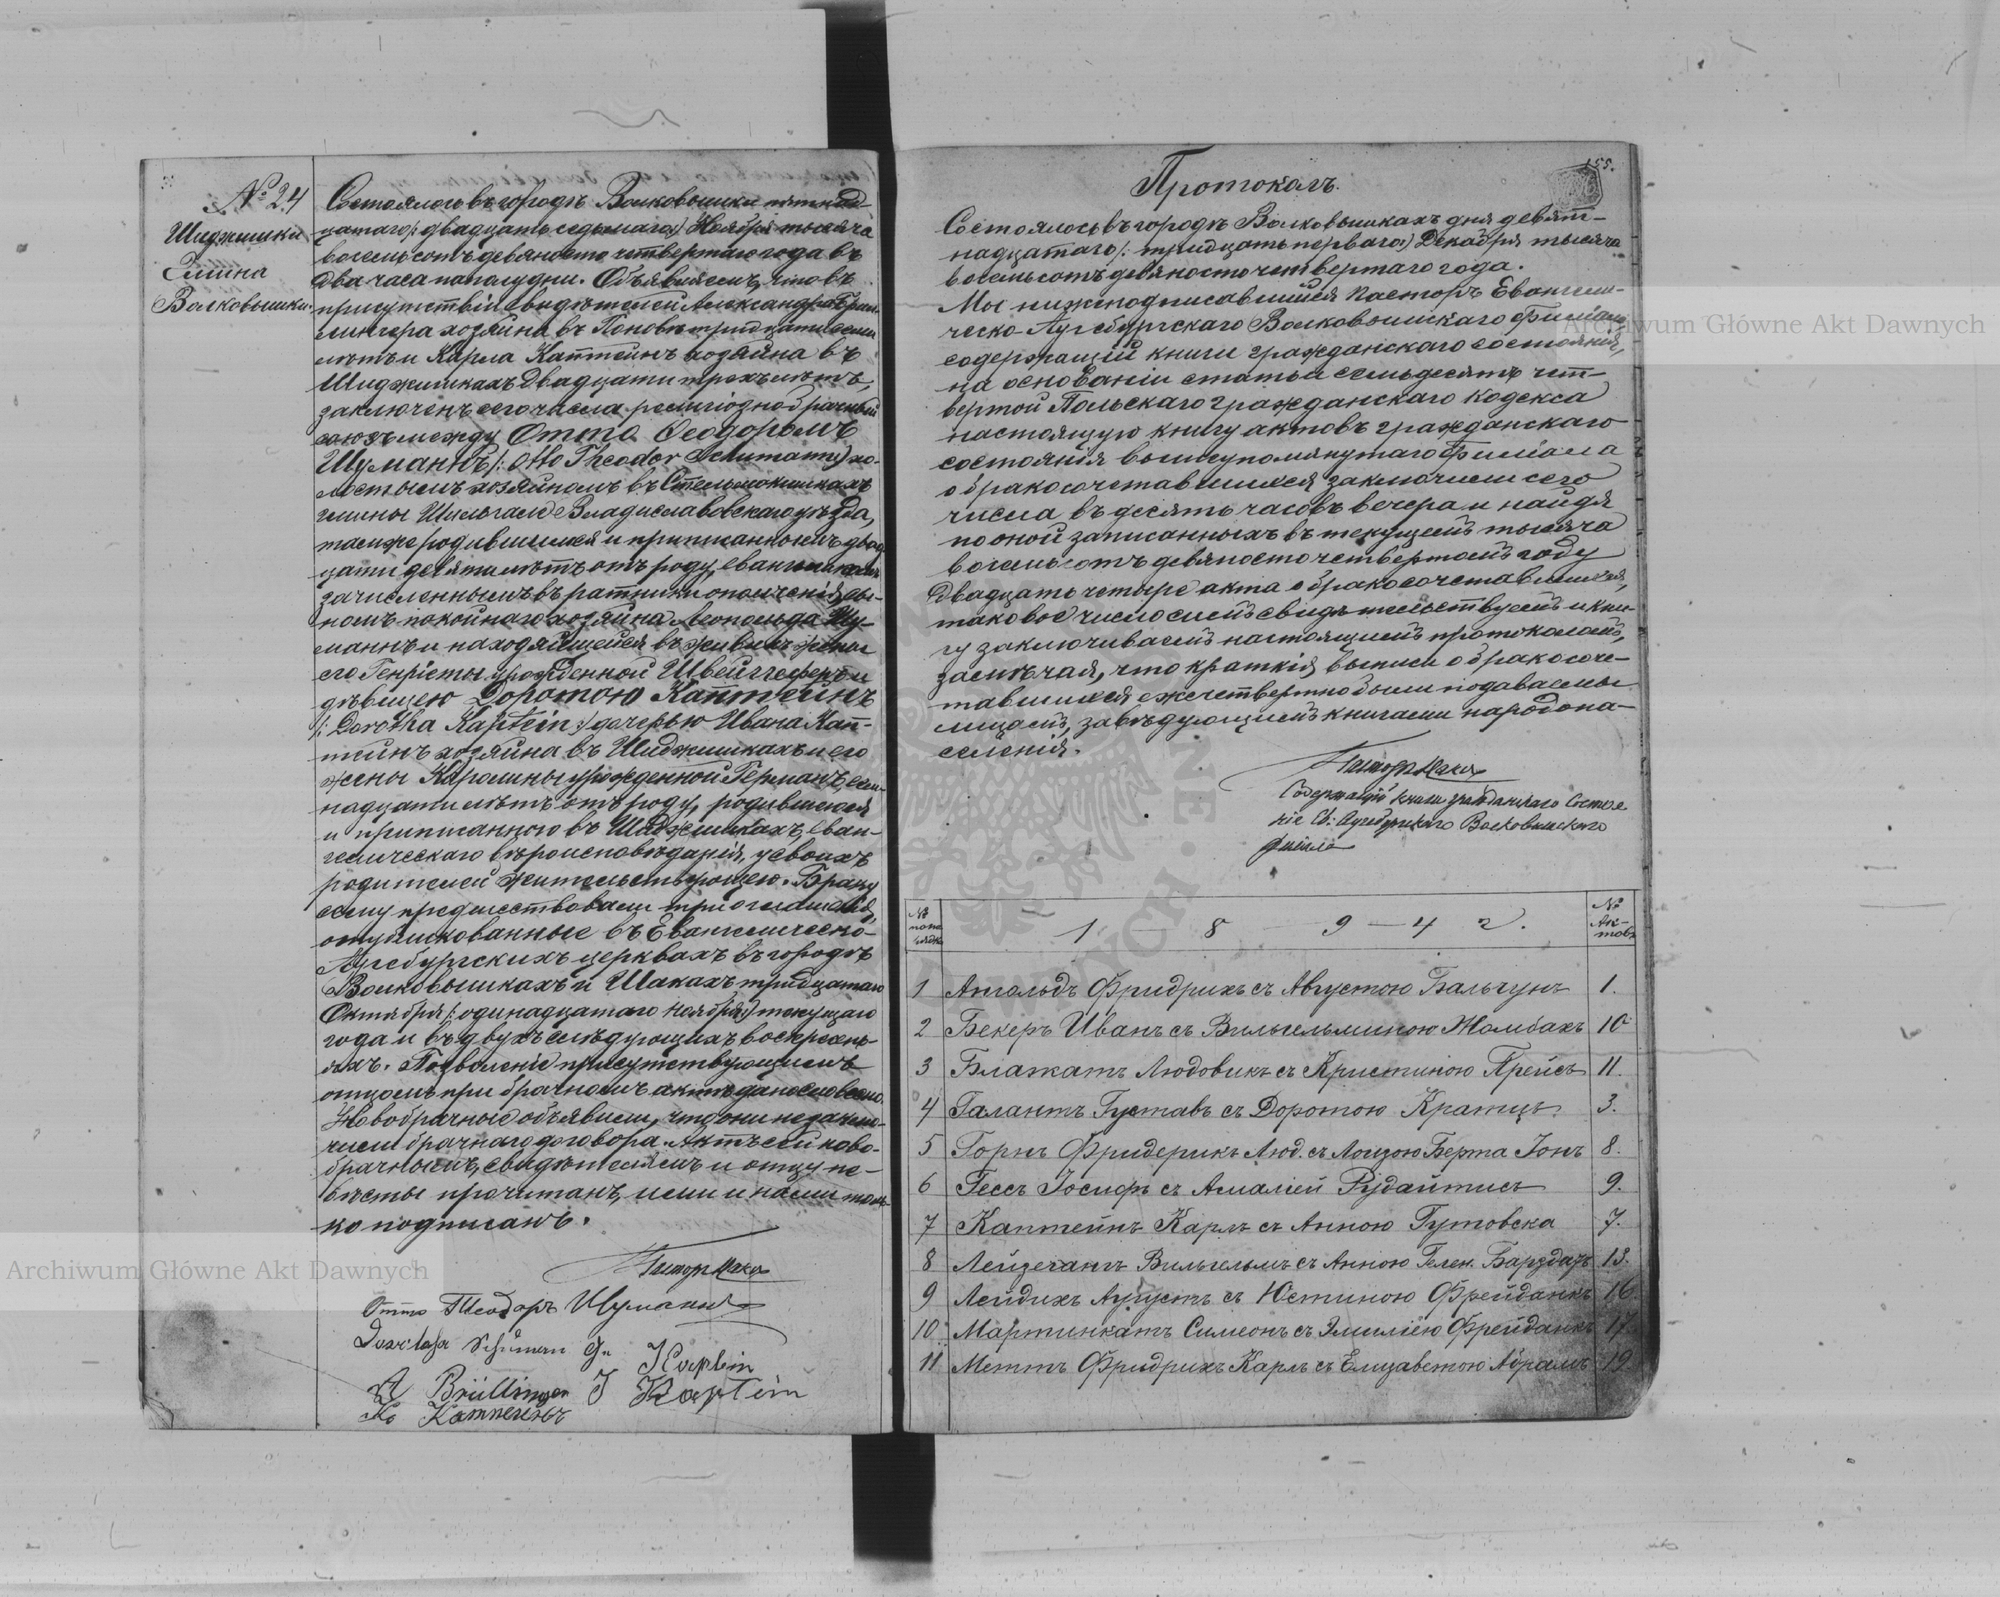 № 24
Шиджишки
Гмина
Волковышки.
Состоялось въ городѣ Волковышки пятнад-
цатаго /: двадцать седьмаго :/ Ноября тысяча
восемьсотъ девяносто четвертаго года въ
два часа пополудни. Объявляемъ, что въ
присутствіи свидѣтелей Александра Брил-
лингера хозяина въ тридцати семи
лѣтъ и Карла Каптейнъ хозяина въ
Шиджишкахъ двадцати трехъ лѣтъ,
заключенъ сего числа религіозно брачный
союзъ между Отто Ѳеодоромъ
Шуманнъ /: Otto Theodor Schumann :/ хо-
лостымъ хозяиномъ въ
гмины Шильгале Владиславовскаго уѣзда,
тамже родившимся и приписаннымъ двад-
цати девяти лѣтъ отъ роду, евангеликомъ
зачисленнымъ въ ратники ополченія, сы-
номъ покойнаго хозяина Леопольда Шу-
маннъ и находящейся въ живыхъ жены
его Генріеты урожденной и
дѣвицею Доротою Каптейнъ
/: Dorotha Kaptein :/ дочерью Ивана Кап-
тейнъ хозяина въ Шиджишкахъ и его
жены Каролины урожденной Германъ, сем-
надцати лѣтъ отъ роду, родившеюся
и приписанною въ Шиджишкахъ, еван-
гелическаго вѣроисповѣданія, у своихъ
родителей жительствующею. Браку
сему предшествовали три оглашенія,
опубликованные въ Евангелическо-
Аугсбургскихъ церквахъ въ городѣ
Волковышкахъ и Шакахъ тридцатаго
Октября /: одинадцатаго Ноября :/ текущаго
года и въ двухъ слѣдующихъ воскресень-
яхъ. Позволеніе присутствующимъ
отцомъ при брачномъ актѣ дано словесно.
Новобрачные объявили, что они не заклю-
чили брачнаго договора. Актъ сей ново-
брачнымъ, свидѣтелямъ и отцу не-
вѣсты прочитанъ, ими и нами толь-
ко подписанъ.
Пасторъ
Отто Теодоръ Шуманнъ
Schuman Kaptein
A Brillinger J Kaptein
Каптейнъ
155.
Протоколъ.
Состоялось въ городѣ Волковышкахъ дня девят-
надцатаго /: тридцать перваго :/ Декабря тысяча
восемьсотъ девяносто четвертаго года.
Мы нижеподписавшійся Пасторъ Евангели-
ческо-Аугсбургскаго Волковышскаго Филіала
содержащій книги гражданскаго состоянія,
на основаніи статьи семьдесятъ чет-
вертой Польскаго гражданскаго кодекса
настоящую книгу актовъ гражданскаго
состоянія вышеупомянутаго Филіала
о бракосочетавшихся заключили сего
числа въ десять часовъ вечера и найдя
по оной записанныхъ въ текущемъ тысяча
восемьсотъ девяносто четвертомъ году
двадцать четыре акта о бракосочетавшихся,
таковое число симъ свидѣтельствуемъ и кни-
гу заключиваемъ настоящимъ протоколомъ,
замѣчая, что краткія выписи о бракосоче-
тавшихся ежечетвертно были подаваемы
лицамъ, завѣдующимъ книгами народона-
селенія.
Пасторъ
Содержащій книги гражданскаго Состоя-
нія Ев: Аугсбургскаго Волковышскаго
Филіала
№ поряд. 1 8 9 — 4 г. № Ак-товъ
1 Ангольдъ Фридрихъ съ Августою Бальчунъ 1.
2 Бекеръ Иванъ съ Вильгельминою Жамбахъ 10
3 Блажатъ Людовикъ съ Кристиною Прейсъ 11.
4 Галантъ Густавъ съ Доротою Кратцъ 3.
5 Горнъ Фридерикъ Люд. съ Лоизою Берта Іонъ 8.
6 Гессъ Іосифъ съ Амаліей Рудайтисъ 9.
7 Каптейнъ Карлъ съ Анною Гутовска 7.
8 Лейцегангъ Вильгельмъ съ Анною Гелен. Барздатъ 13.
9 Лейдихъ Августъ съ Юстиною Фрейданкъ 16.
10 Мартинкатъ Симеонъ съ Эмиліею Фрейданкъ 17.
11 Меттъ Фридрихъ Карлъ съ Елизаветою Абрамъ 19
Archiwum Główne Akt Dawnych
Archiwum Główne Akt Dawnych